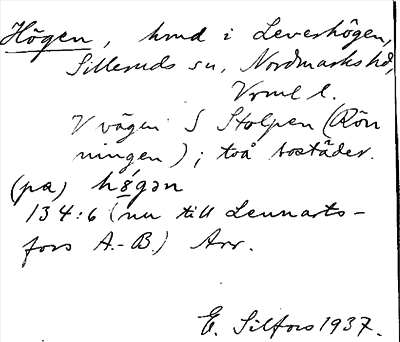 Högen, hmd i Leverhögen,
Silleruds sn, Nordmarks hd,
Vrml l.
V vägen S Stolpen (Rön
ningen); två bostäder.
(pa) hö́gən
134:6 (nu till Lennarts-
fors A.-B.) Arr.
E. Silfors 1937.